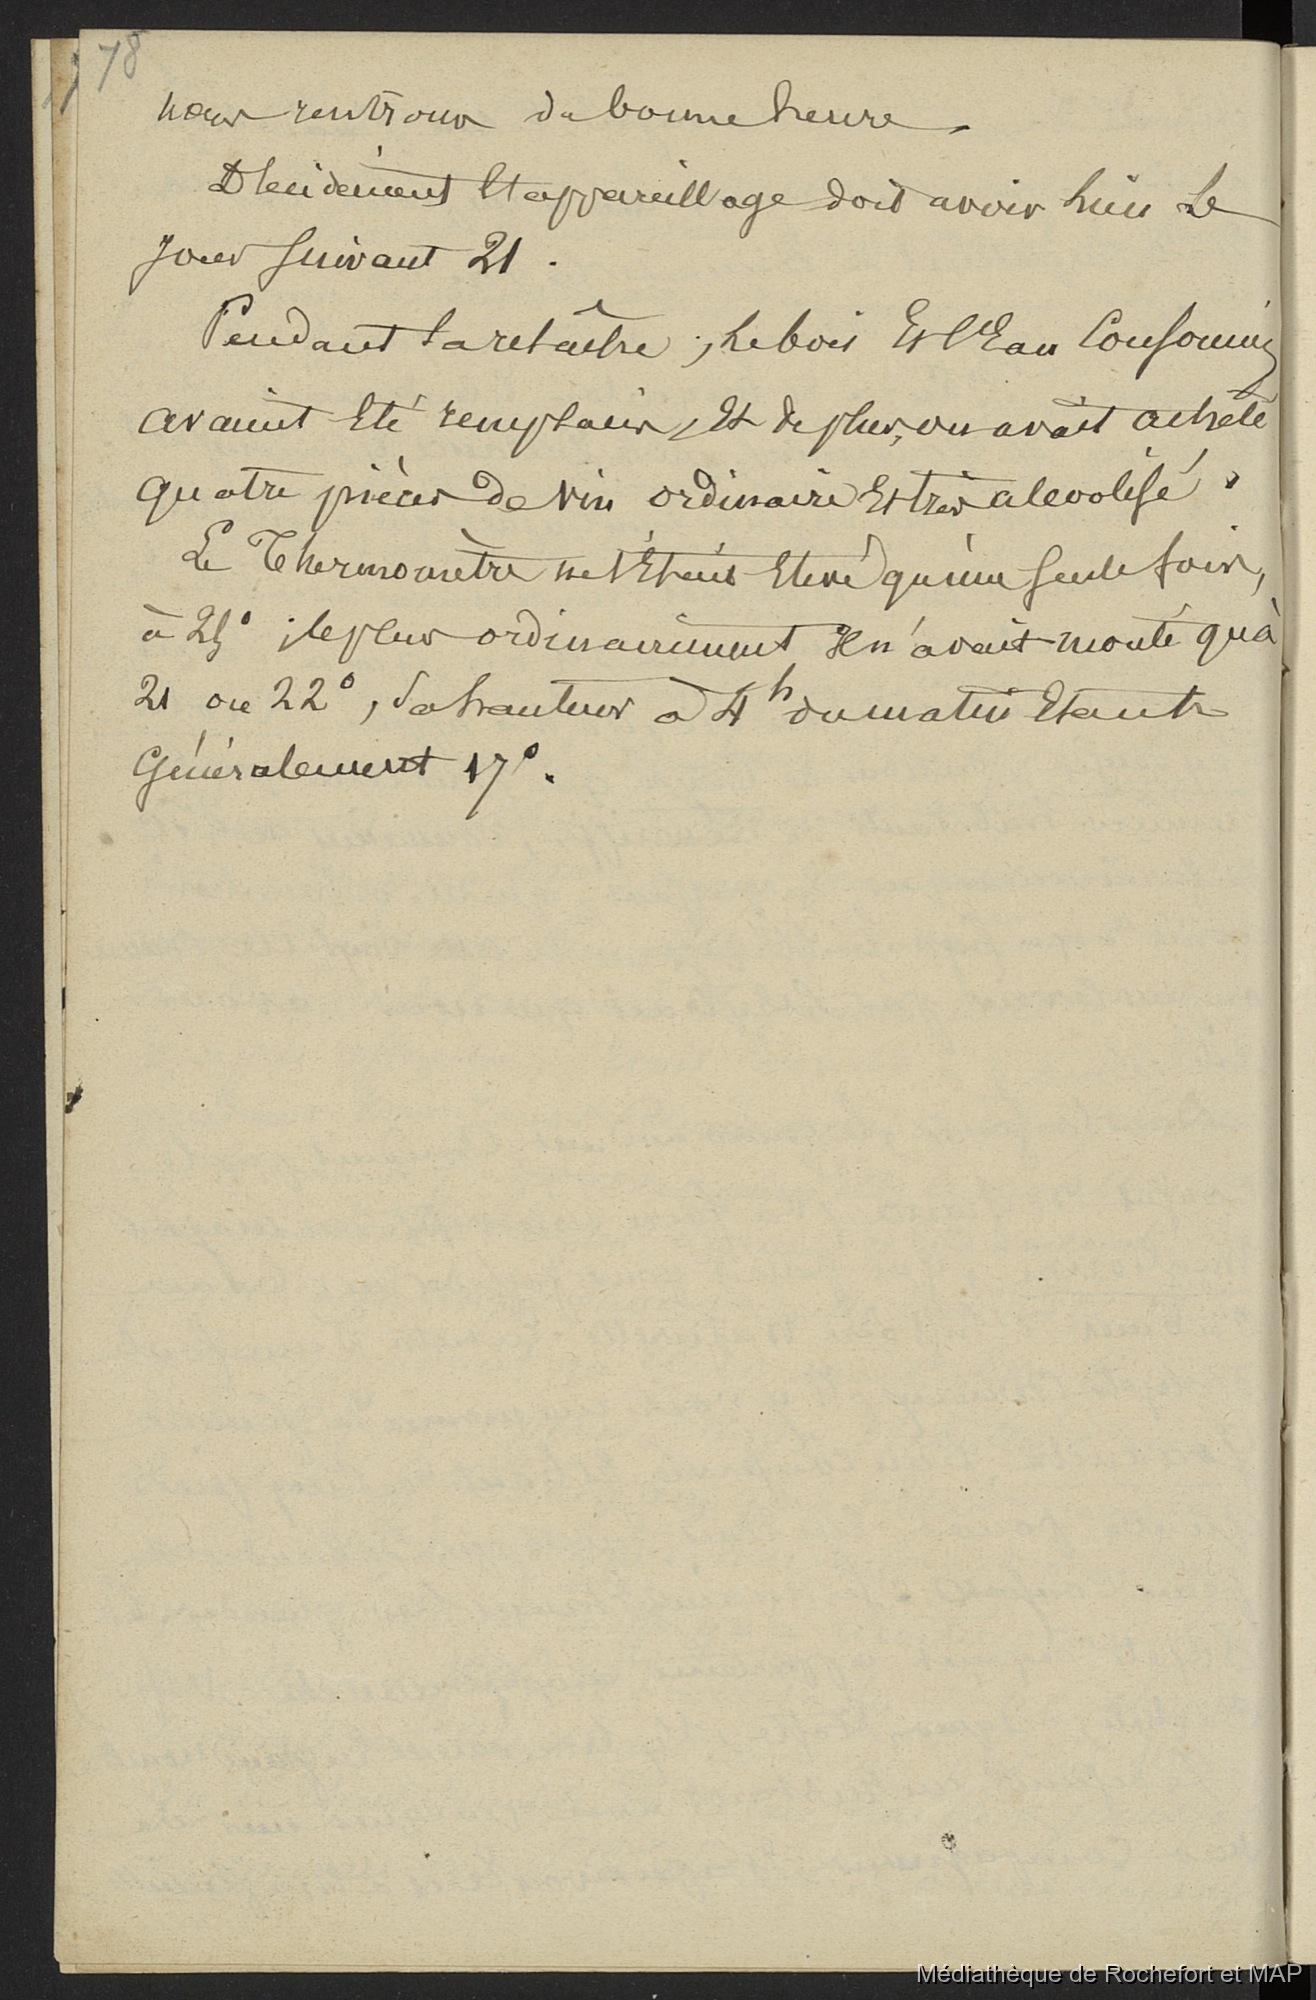 78
nous rentrons de bonne heure.
Décidément l'appareillage doit avoir lieu le
jour suivant 21.
Pendant la relâche, le bois et l'eau consommés
avaient été remplacés, et de plus, on avait acheté
quatre pièces de vin ordinaire et très alcoolisé.
Le Thermomètre ne s'était élevé qu'une seule fois,
à 25°; le plus ordinairement il n'avait monté qu'à
21 ou 22°, sa hauteur à 4h du matin étant
Généralement 17°.
Médiathèque de Rochefort et MAP